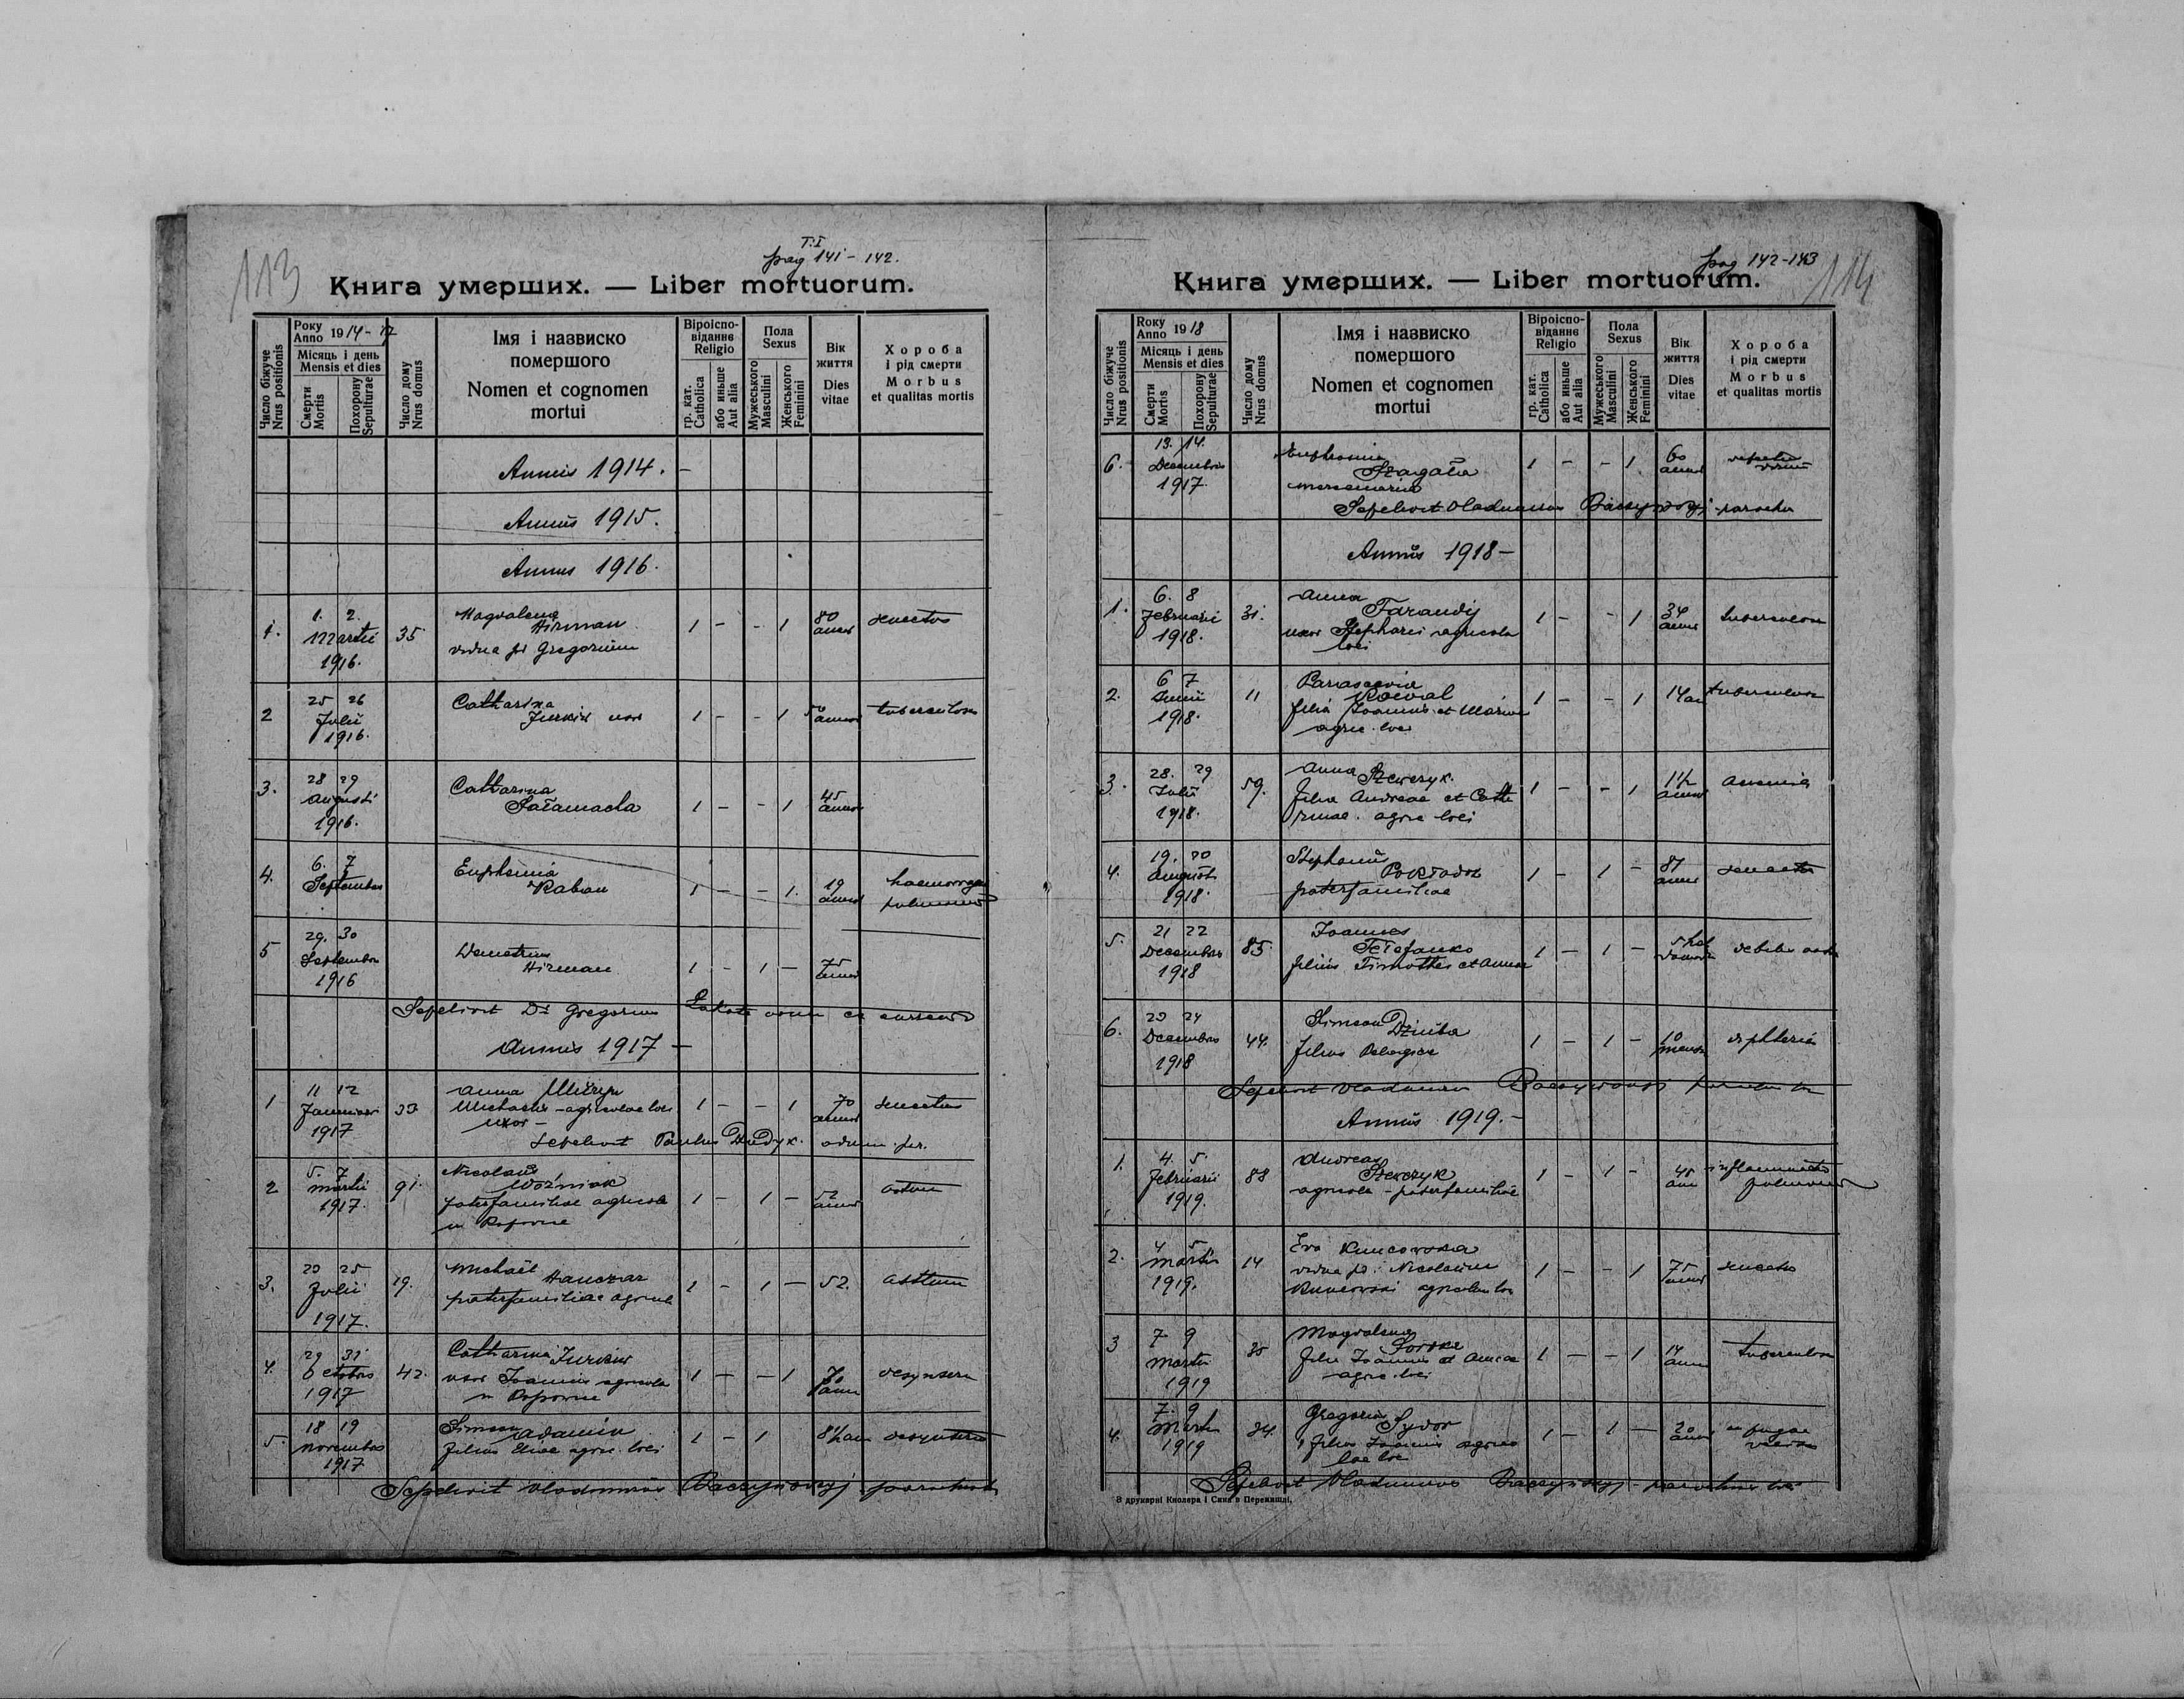 113
T. I
pag 141 - 142.
Книга умерших. — Liber mortuorum.
Число біжуче
Nrus positionis
Року
Anno 1914-17
Місяць і день
Mensis et dies
Смерти
Mortis
Похорону
Sepulturae
Число дому
Nrus domus
Імя і назвиско
помершого
Nomen et cognomen
mortui
Віроіспо-
віданнє
Religio
гр. кат.
Catholica
або иньше
Aut alia
Пола
Sexus
Мужеського
Masculini
Женського
Feminini
Вік
життя
Dies
vitae
Хороба
і рід смерти
Morbus
et qualitas mortis
Annus 1914. -
Annus 1915.
Annus 1916.
1. 1. 2. Martii 1916. 35 Magdalena Hirman
vidua po Gregorium 1 - - 1 80 annor senectus
2 25 26 Julii 1916. Catharina
Jurkiw 1 - - 1 annor tuberculosis
3. 28 29 Augusti 1916. Catharina
Sałamacha 1 - - 1 45 annor
4. 6. 7 Septembris Euphemia
Raban 1 - - 1. 19 annor
5 29. 30 Septembris 1916 Demetrius
Hirman 1 - 1 - 75 annor
Sepelivit Dr Gregorius Łakota
Annus 1917 -
1 11 12 Januarii 1917 33 Anna
Michaelis - agricolae loci
uxor - 1 - - 1 70 annor senectus
Sepelivit Paulus Dudyk. adm. par.
2 5. 7 Martii 1917. 91. Nicolaus
Woźniak
paterfamiliae agricola
1 - 1 - 52 annor
3. 23 25 Julii 1917. 19. Michaël
Hanczar
paterfamiliae agricola 1 - 1 - 52. asthma
4. 29 31 Octobris 1917 42. Catharina Jurkiw
uxor Joannis agricola
1 - - 1 70 ann
5. 18 19 Novembris 1917 Simeon Adamiw
filius Eliae agric. loci 1 - 1 8½ an
Sepelivit Vladimirus Baczyńskyj parochus
pag 142-143
114
Книга умерших. — Liber mortuorum.
Число біжуче
Nrus positionis
Року
Anno 1918
Місяць і день
Mensis et dies
Смерти
Mortis
Похорону
Sepulturae
Число дому
Nrus domus
Імя і назвиско
помершого
Nomen et cognomen
mortui
Віроіспо-
віданнє
Religio
гр. кат.
Catholica
або иньше
Aut alia
Пола
Sexus
Мужеського
Masculini
Женського
Feminini
Вік
життя
Dies
vitae
Хороба
і рід смерти
Morbus
et qualitas mortis
6. 13. 14. Decembris 1917. Euphemia
Szagała
mercenaria 1 - - 1 60 annor
Sepelivit Vladimirus Baczyńskyj parochus
Annus 1918 -
1. 6. 8 Februarii 1918. 31. Anna
Farandij
uxor Stephani agricola
loci 1 - - 1 34 annor tuberculosis
2. 6 7 Junii 1918. 11 Parascevia
Kowal
filia Joannis et Mariae
agric. loci 1 - - 1 14 an tuberculosis
3. 28. 29 Julii 1918. 59. Anna Szewczyk.
filia Andreae et Catha
rinae. agric loci 1 - - 1 1½ annor anemia
4. 19. 20 Augusti 1918. Stephanus
Pokładok
paterfamiliae 1 - 1 - 87 annor senectus
5. 21 22 Decembris 1918 85. Joannes
Tełefanko
filius Timothei et Annae 1 - 1 -
6. 23 24 Decembris 1918 44. Simeon Dziuba
filius Pelagiae 1 - 1 - 10 mens diphteria
Sepelivit Vladimirus Baczyńskyj parochus loci
Annus 1919. -
1. 4. 5. Februarii 1919. 88 Andreas
Szewczyk
agricola - paterfamiliae 1 - 1 - 45 ann inflammatio
pulmonum
2. 4 5 Martii 1919. 14 Eva Kuncowska
vidua po. Nicolaum
Kuncowski agricolam loci 1 - - 1 75 annor senectus
3 7 9 Martii 1919 35 Magdalena
filia Joannis et Annae
agric. loci 1 - - 1 14 ann tuberculosis
4. 7. 9 Martii 1919 24. Gregorius
Sydor
filius Joannis agrico
lae loci 1 - 1 - 20 annor
Sepelivit Vladimirus Baczyńskyj - parochus loci
З друкарні Кнолера і Сина в Перемишлі.